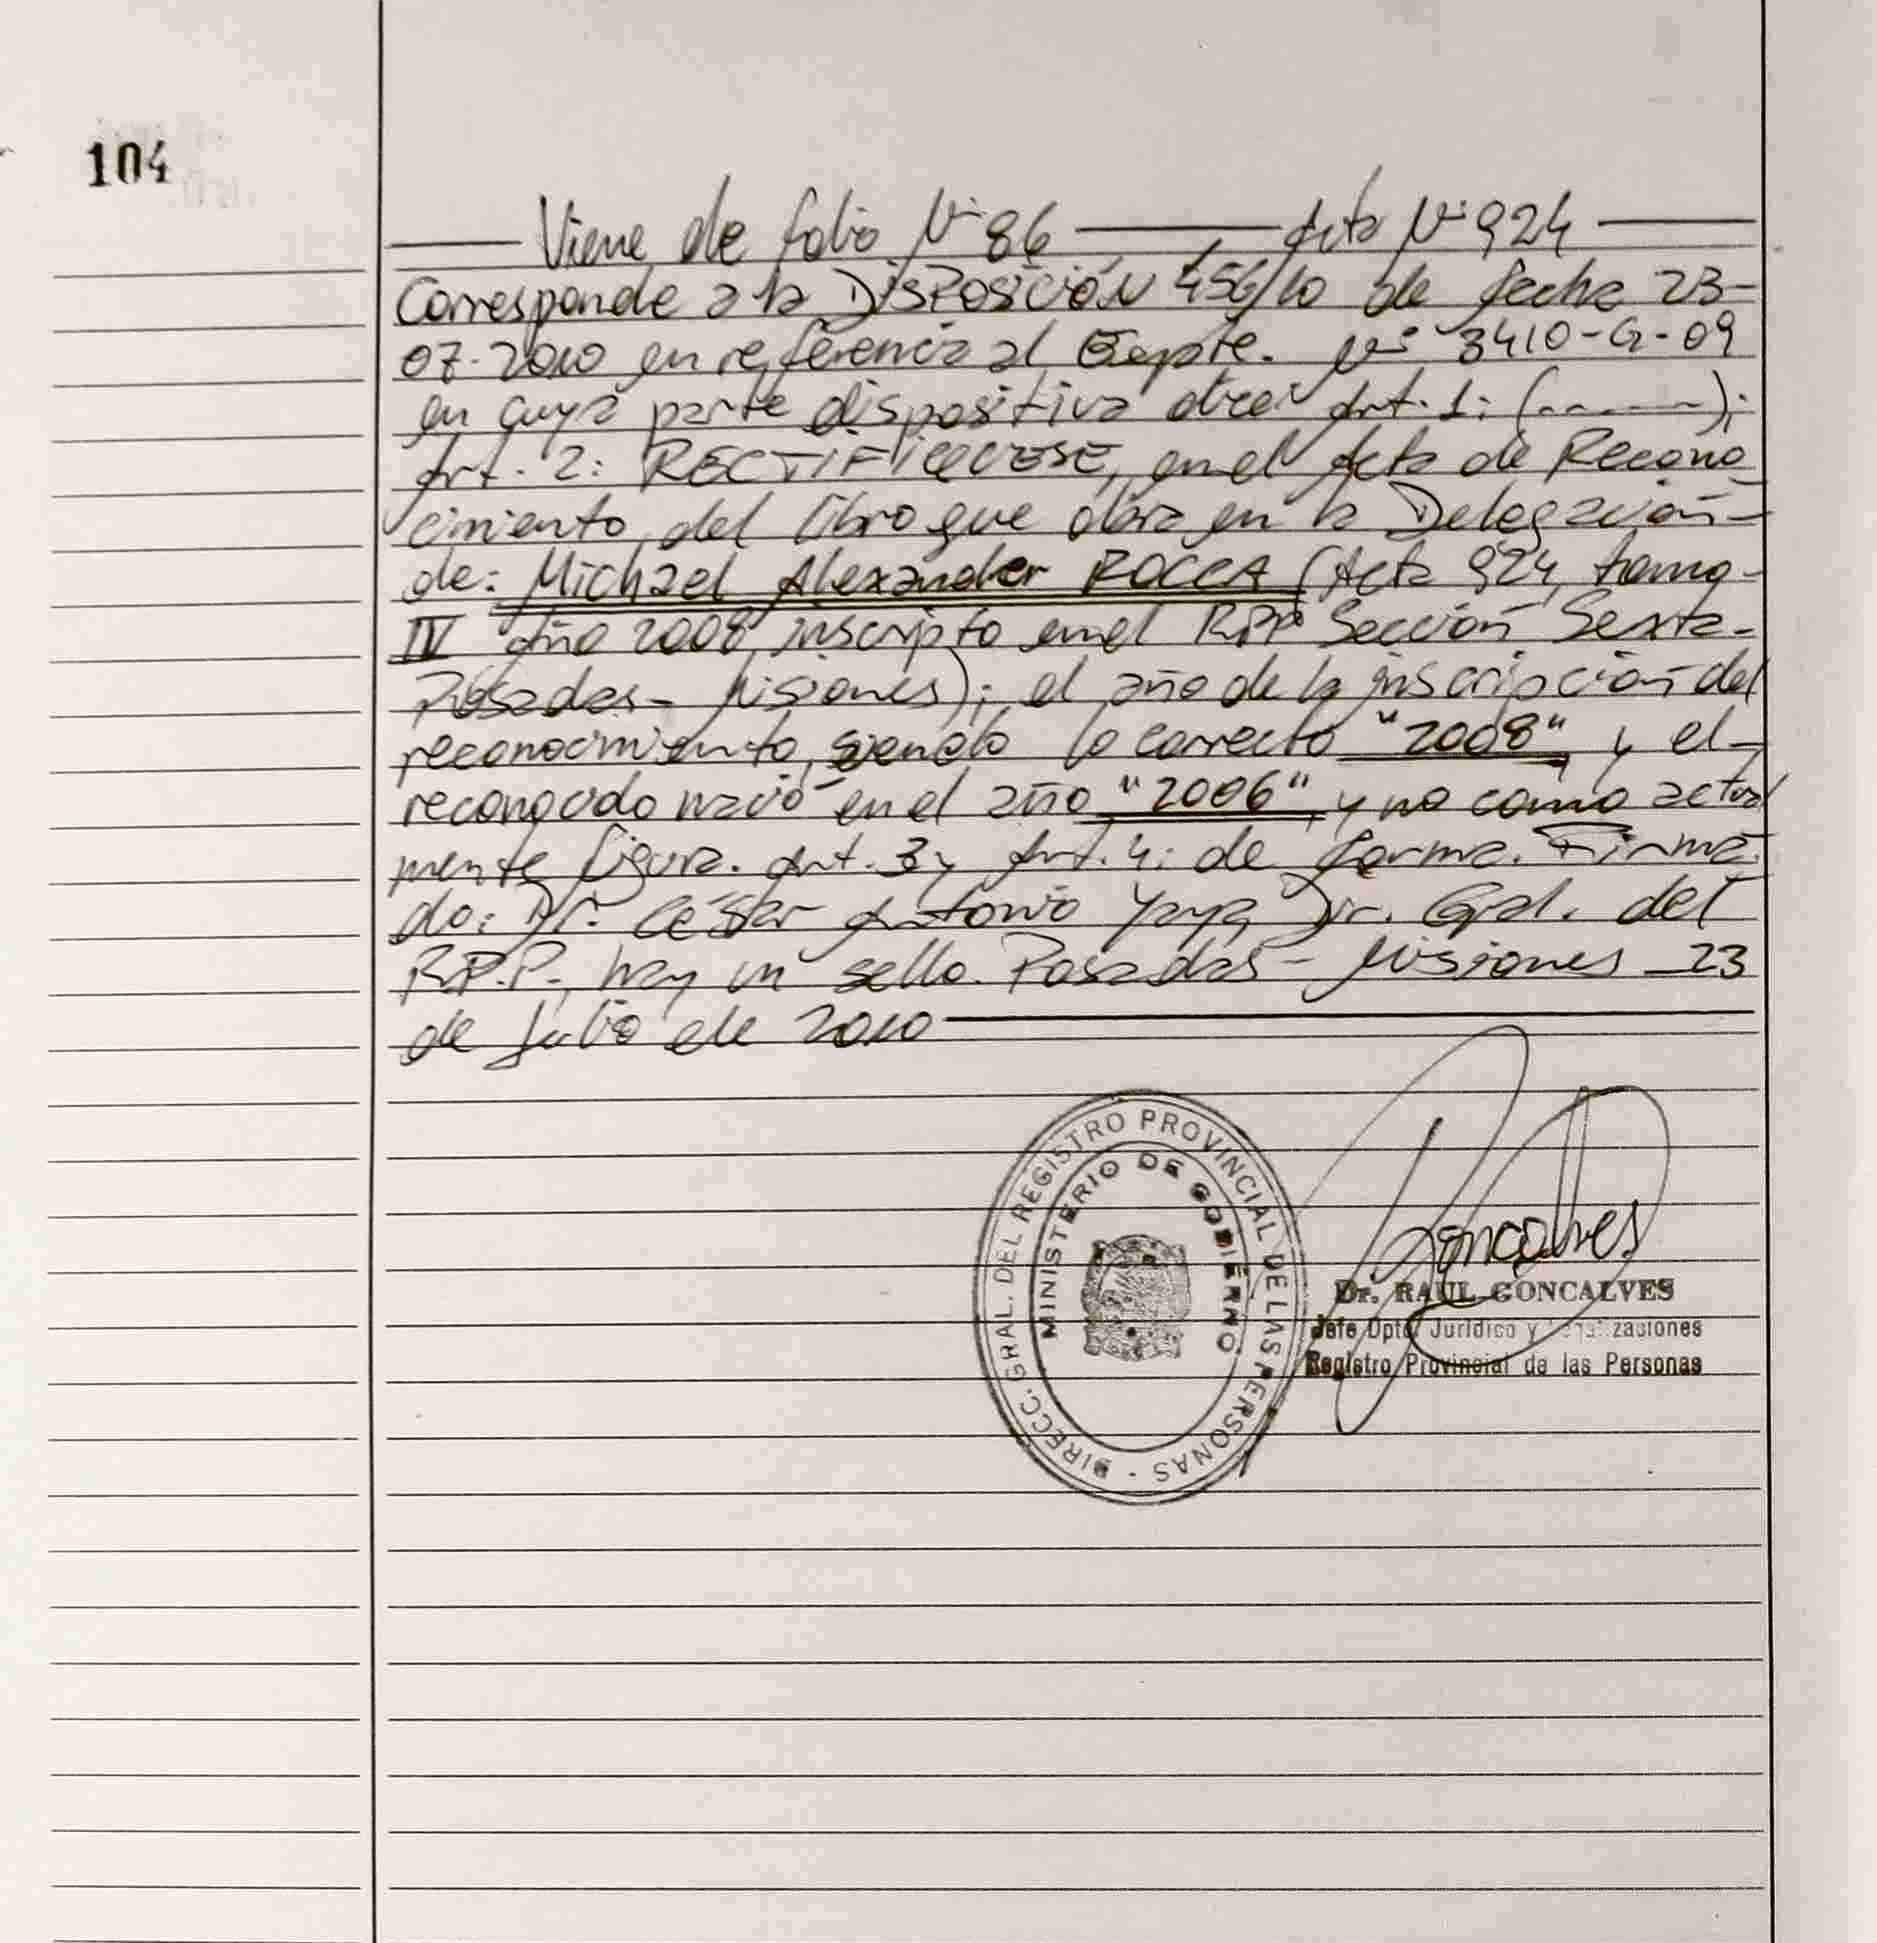 104
Viene de folio N° 86 — Acta N° 924
Corresponde a la DISPOSICIÓN 456/10 de fecha 23-
07-2010 en referencia al Expte. N° 3410-G-09
en cuya parte dispositiva dice: Art. 1: (------);
Art. 2: RECTIFIQUESE, en el Acta de Recono
cimiento del libro que obra en la Delegación-
de: Michael Alexander ROCCA (Acta 924, tomo-
IV año 2008 inscripto en el RPP Sección Sexta-
Posadas- Misiones); el año de la inscripción del
reconocimiento, siendo lo correcto "2008" y el-
reconocido nació en el año "2006" y no como actual
mente figura. Art. 3 y Art. 4: de forma. Firma
do: Dr. César Antonio Yaya, Dir. Gral. del
R.P.P., hay un sello. Posadas- Misiones 23
de Julio de 2010
DIRECC. GRAL. DEL REGISTRO PROVINCIAL DE LAS PERSONAS -
MINISTERIO DE GOBIERNO
Goncalves
Dr. RAUL GONCALVES
Jefe Dpto. Jurídico y
Registro Provincial de las Personas